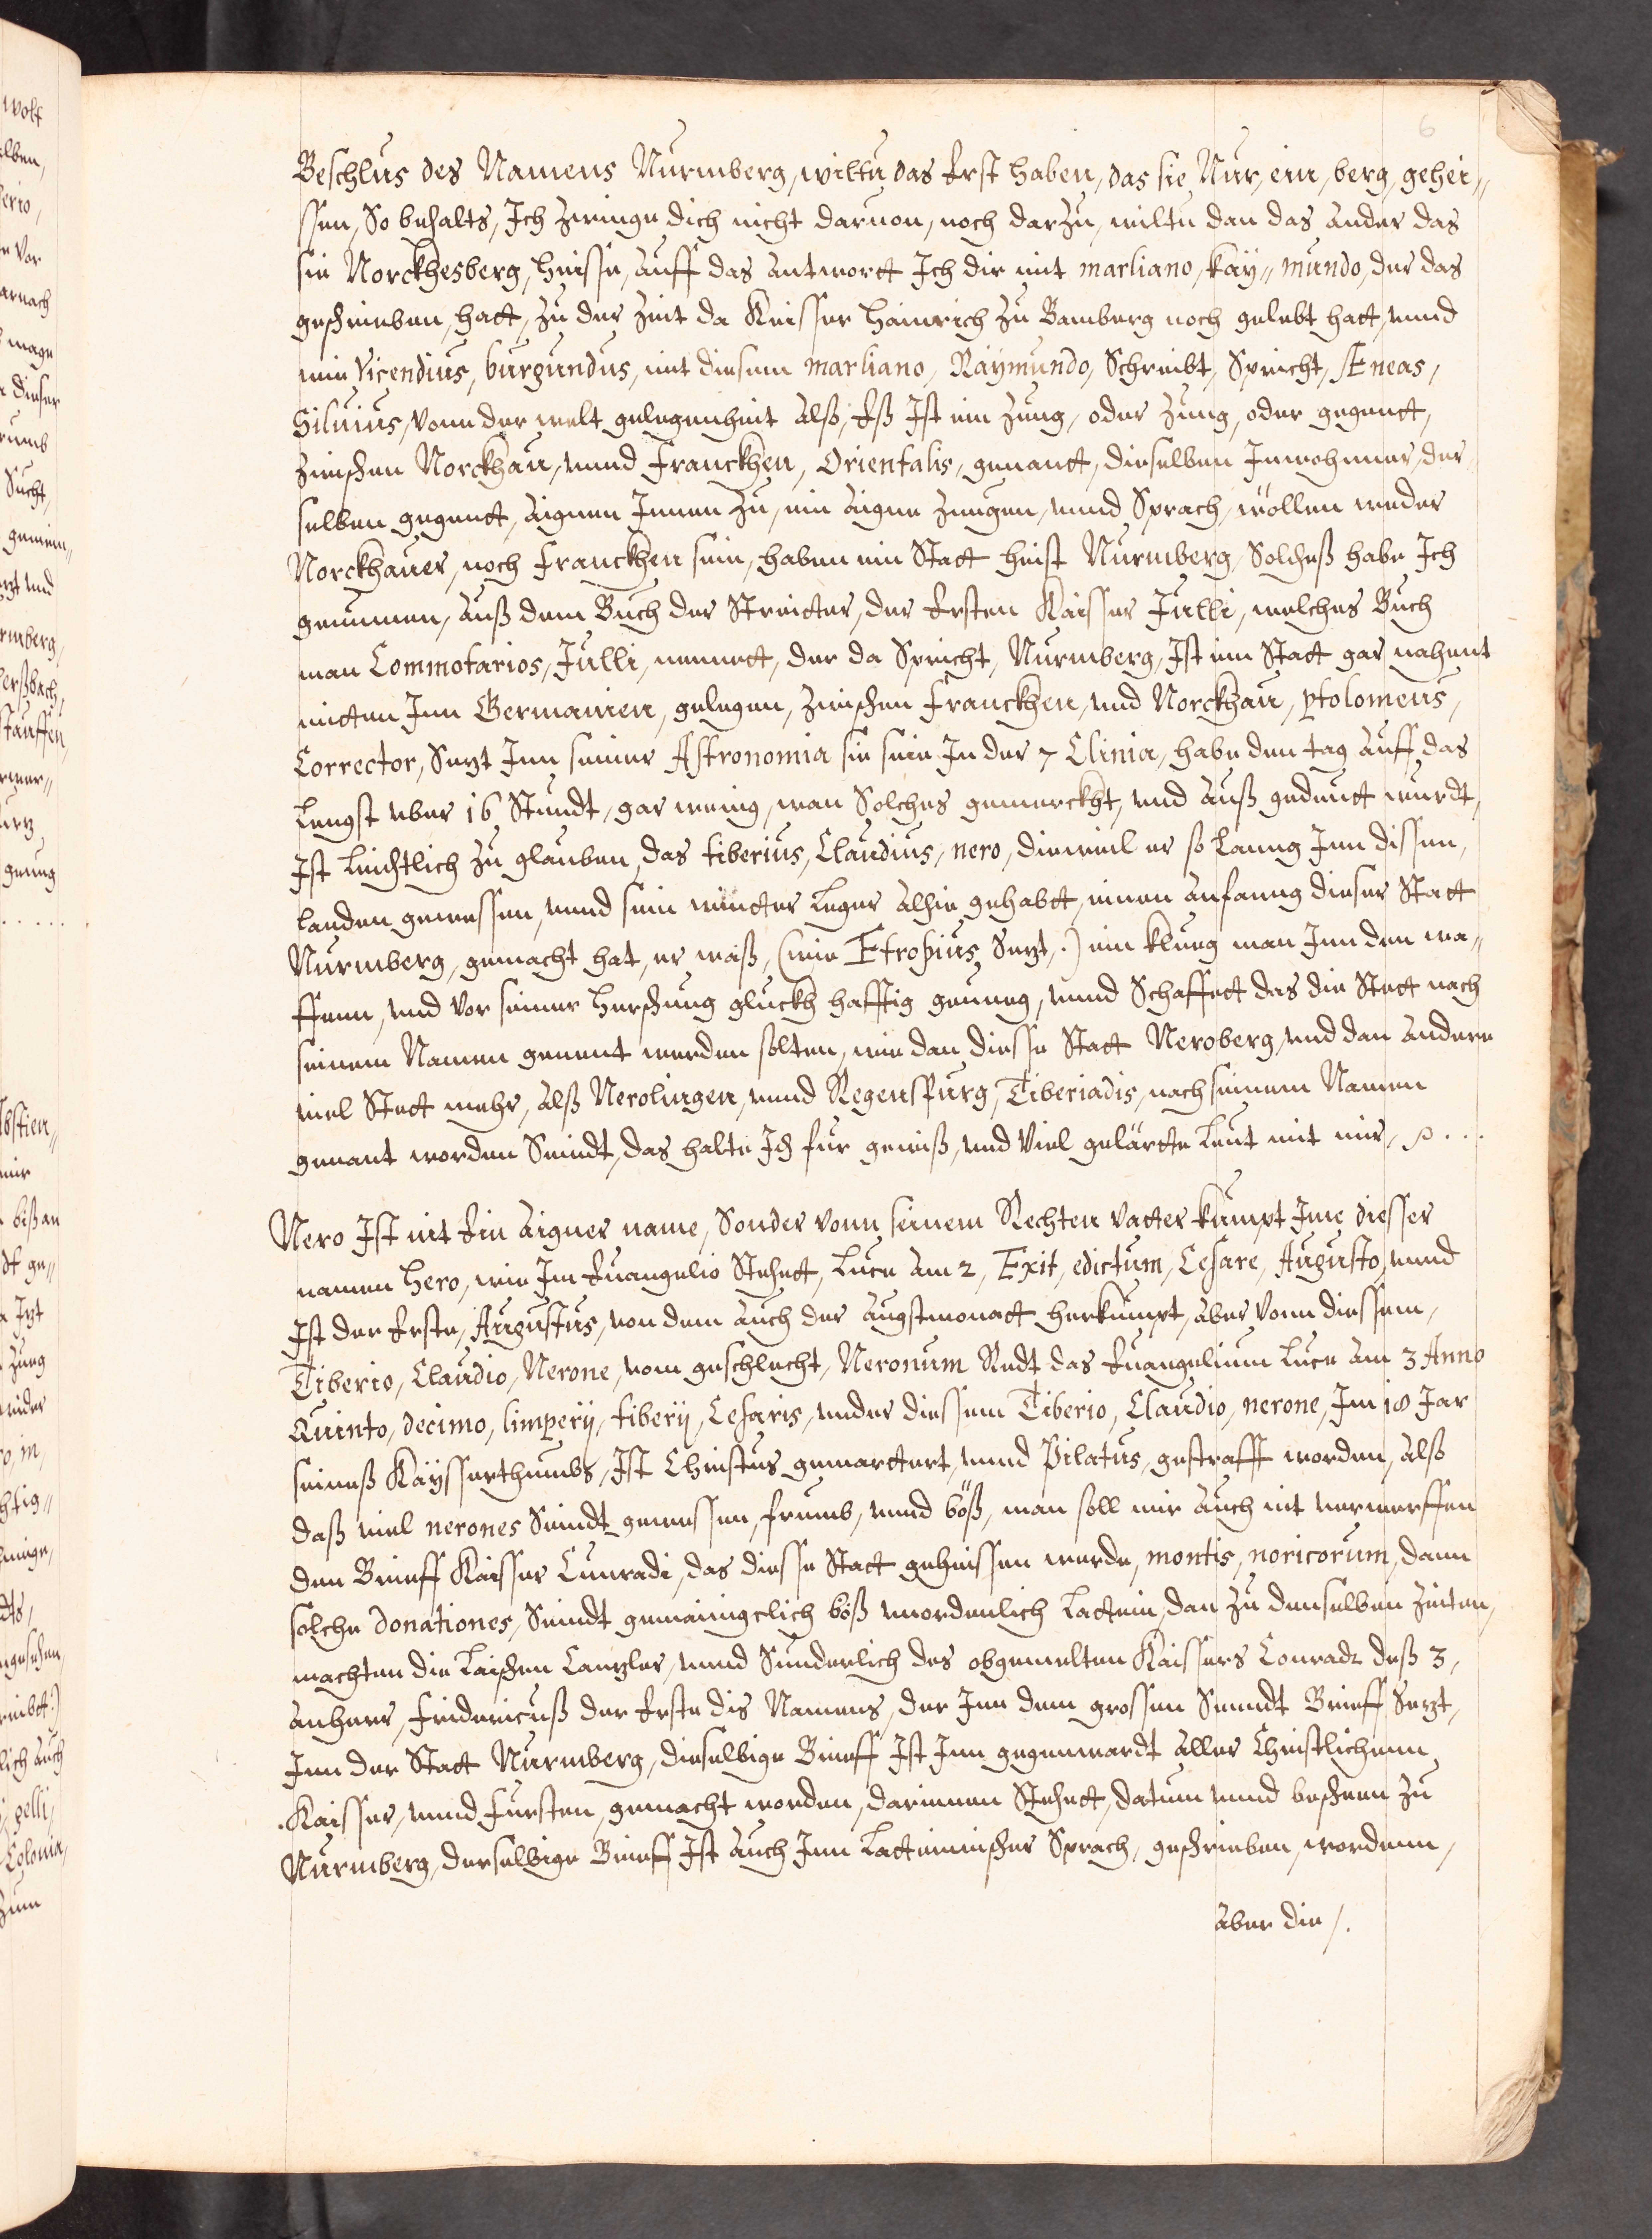 6
Beschlus des Namens Nurmberg, wiltu das Erst haben, das sie Nur, ein, berg, gehei¬
ssen, So behalts, Ich zwinge dich nicht daruon, noch darzu, wiltu dan das ander das
sie Norckhesberg, heisse, auff das antwortt Ich dir mit marliano, kay¬ mundo, der das
geschrieben, hatt, zu der Zeit da Keisser Hainrich zu Bamberg noch gelebt hatt, vnnd
wie Vicendius, burgundus, mit diesem marliano, Raymundo, Schreibt, Spricht, Æneas,
Siluius, vonn der welt gelegenheit Alß, Eß Ist ein Zung, oder Zung, oder gegentt,
zwischen Norckhau, vnnd Franckhen, Orientalis, genantt, dieselben Inwohnner, der
selben gegentt, aignen Jnnen zu, ein aigne Zungen, vnnd Sprach, wöllen weder
Norckhauer, noch Franckhen sein, haben ein Statt heist Nurmberg, Solcheß habe Ich
genummen, auß dem Buch der Streitter, der Ersten Kaisser Julli, welches Buch
man Commotarios, Julli, nennett, der da Spricht, Nurmberg, Ist ein Statt gar nahent
mitten Inn Germanien, gelegen, zwischen Franckhen, vnd Norckhau, ptolomeus,
Corrector, Sezt Inn seiner Astronomia sie seie In der 7 Clinia, habe den tag auff das
Lengst vber 16 Stundt, gar wenig, wan Solches gemerckht, vnd auß gedeutt wurdt,
Ist Leichtlich zu glauben, das tiberius, Claudius, nero, dieweil er so Lanng Inn dissen,
landen gewessen, vnnd sein wintter Leger alhie gehabtt, einen anfanng dieser Statt
Nurmberg, gemacht hat, er waß, (wie Etropius Sezt,.) ein klueg man Inn den wa¬
ffenn, vnd vor seiner herschung gluckh hafftig genueg, vnnd Schaffett das die Stett nach
seinem Namen genent werden solten, wie dan diesse Statt Neroberg, vnd dan andere
viel Stett mehr, alß Nerolingen, vnnd Regenspurg, Tiberiadis, nach seinem Namen
genant worden Seindt, das halte Ich fur gewiß, vnd Viel gelärtte Leut mit mir,
Nero Ist nit Ein aigner name, Sonder vonn seinem Rechten vatter kumpt Ime diesser
namen hero, wie Im Euangelio Stehett, Luce am 2, Exit, edictum, Cesare, Augusto, vnnd
Ist der Erste, Augustus, von dem auch der augstmonatt herkumpt, aber vonn diessem,
Tiberio, Claudio, Nerone, vom geschlecht, Neronum Redt das Euangelium Luce am 3 Anno
Quinto, decimo, limperij, tiberij, Cesaris, vnder diessem Tiberio, Claudio, nerone, Im 18 Jar
seineß Kaysserthumbs, Ist Christus gemarttert, vnnd Pilatus, gestrafft worden, alß
daß viel nerones Seindt gewessen, frumb, vnnd böß, man soll mir auch nit verwerffen
den Brieff Kaisser Cunradi, das diesse Statt geheissen werde, montis, noricorum, dann
solche donationes, Seindt gemainigclich böß vnordenlich Lattein, dan zu denselben Zeiten,
machten die Laischen Canzler, vnnd Sunderlich des obgemelten Kaissers Conradi deß 3,
anherr, Fridericuß der Erste dis Namens, der Inn dem grossen Sendt Brieff Sezt,
Inn der Statt Nurmberg, dieselbige Brieff Ist Inn gegenwardt aller Christlichenn
Kaisser, vnnd Fursten, gemacht worden, darinnen Stehett, datum vnnd bescheen zu
Nurmberg, derselbige Brieff Ist auch Inn Latteinischer Sprach, geschrieben, wordenn,
aber die /.